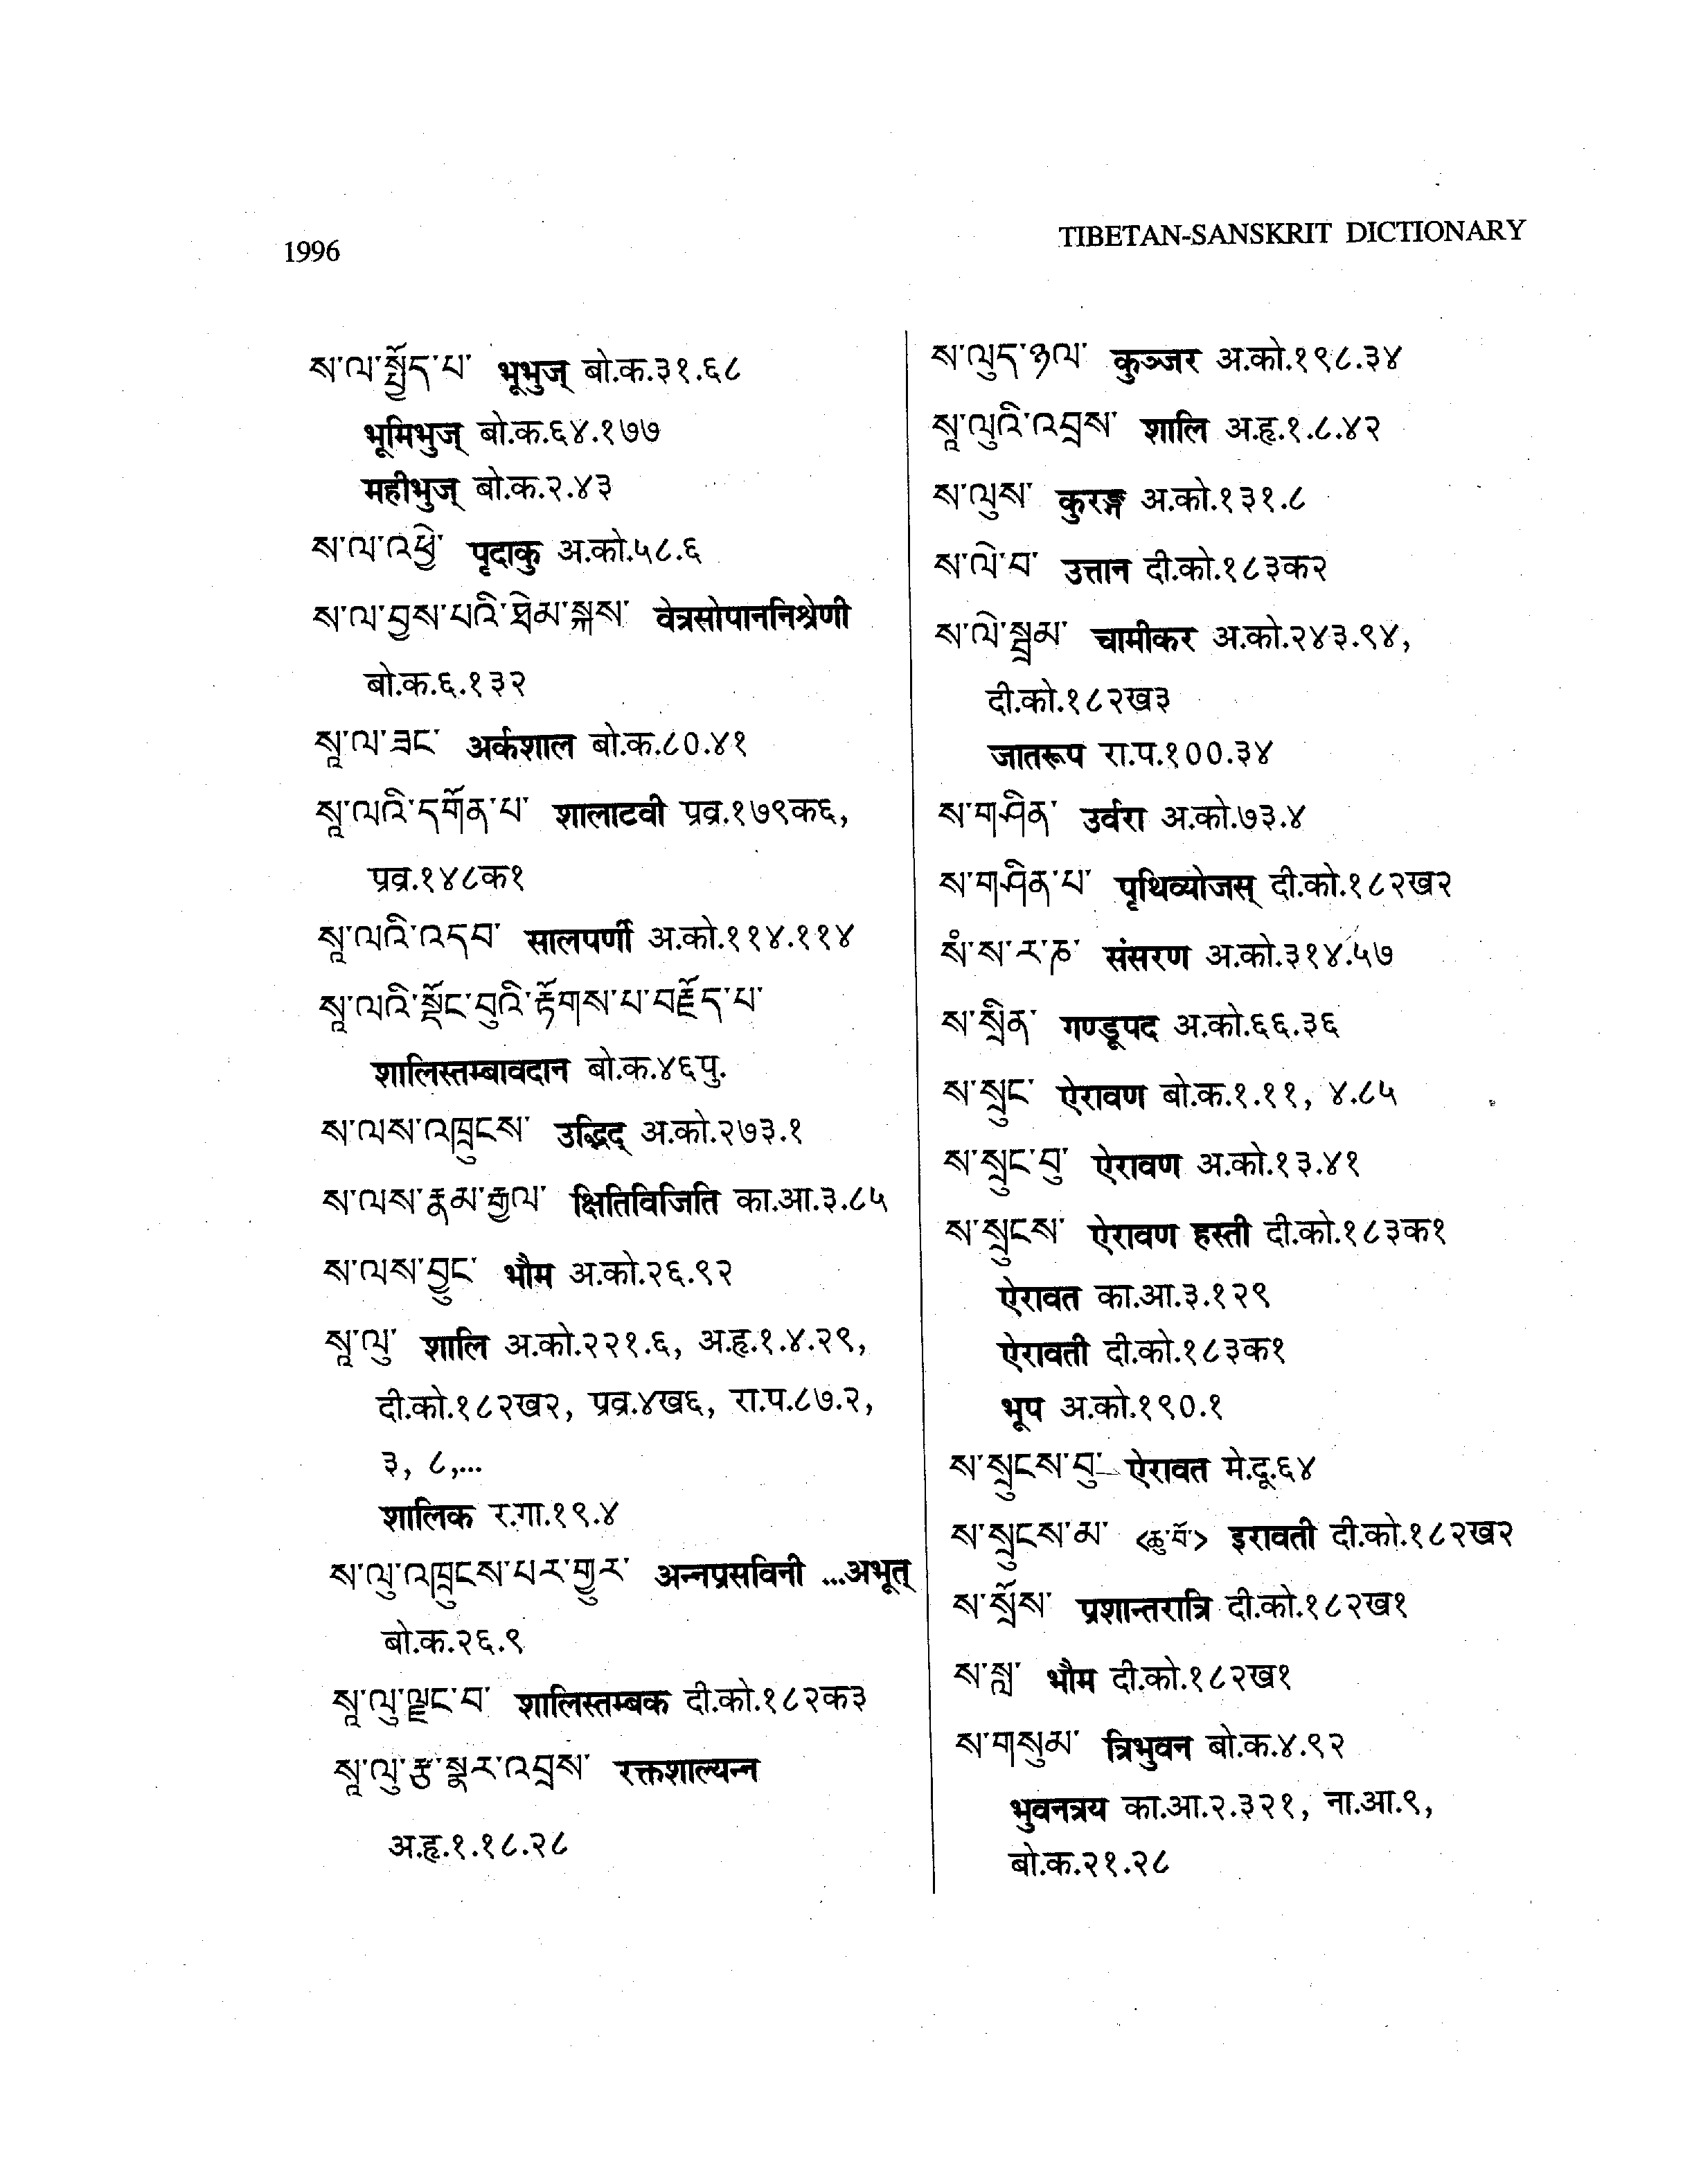 1996
TIBETAN-SANSKRIT DICTIONARY
ས་ལ་སྤྱོད་པ་ भूभुज् बो.क.३१.६८
भूमिभुज् बो.क.६४.१७७
महीभुज् बो.क.२.४३
ས་ལ་འཕྱེ་ पृदाकु अ.को.५८.६
ས་ལ་བྱས་པའི་ཐེམ་སྐས་ वेत्रसोपाननिश्रेणी
बो.क.६.१३२
སཱ་ལ་ཟང་ अर्कशाल बो.क.८०.४१
སཱ་ལའི་དགོན་པ་ शालाटवी प्रव्र.१७९क६,
प्रव्र.१४८क१
སཱ་ལའི་འདབ་ सालपर्णी अ.को.११४.११४
སཱ་ལའི་སྡོང་བུའི་རྟོགས་པ་བརྗོད་པ་
शालिस्तम्बावदान बो.क.४६पु.
ས་ལས་འཁྲུངས་ उद्भिद् अ.को.२७३.१
ས་ལས་རྣམ་རྒྱལ་ क्षितिविजिति का.आ.३.८५
ས་ལས་བྱུང་ भौम अ.को.२६.९२
སཱ་ལུ་ शालि अ.को.२२१.६, अ.हृ.१.४.२९,
दी.को.१८२ख२, प्रव्र.४ख६, रा.प.८७.२,
३, ८,...
शालिक र.गा.१९.४
ས་ལུ་འཁྲུངས་པར་གྱུར་ अन्नप्रसविनी ...अभूत्
बो.क.२६.९
སཱ་ལུ་ལྗང་བ་ शालिस्तम्बक दी.को.१८२क३
སཱ་ལུ་རྩ་སྣར་འབྲས་ रक्तशाल्यन्न
अ.हृ.१.१८.२८
ས་ལུད་ཉལ་ कुञ्जर अ.को.१९८.३४
སཱ་ལུའི་འབྲས་ शालि अ.हृ.१.८.४२
ས་ལུས་ कुरङ्ग अ.को.१३१.८
ས་ལེ་བ་ उत्तान दी.को.१८३क२
ས་ལེ་སྦྲམ་ चामीकर अ.को.२४३.९४,
दी.को.१८२ख३
जातरूप रा.प.१००.३४
ས་གཤིན་ उर्वरा अ.को.७३.४
ས་གཤིན་པ་ पृथिव्योजस् दी.को.१८२ख२
སཾ་ས་ར་ཎ་ संसरण अ.को.३१४.५७
ས་སྲིན་ गण्डूपद अ.को.६६.३६
ས་སྲུང་ ऐरावण बो.क.१.११, ४.८५
ས་སྲུང་བུ་ ऐरावण अ.को.१३.४१
ས་སྲུངས་ ऐरावण हस्ती दी.को.१८३क१
ऐरावत का.आ.३.१२९
ऐरावती दी.को.१८३क१
भूप अ.को.१९०.१
ས་སྲུངས་བུ་ ऐरावत मे.दू.६४
ས་སྲུངས་མ་ <ཆུ་བོ་> इरावती दी.को.१८२ख२
ས་སྲོས་ प्रशान्तरात्रि दी.को.१८२ख१
ས་སླ་ भौम दी.को.१८२ख१
ས་གསུམ་ त्रिभुवन बो.क.४.९२
भुवनत्रय का.आ.२.३२१, ना.आ.९,
बो.क.२१.२८